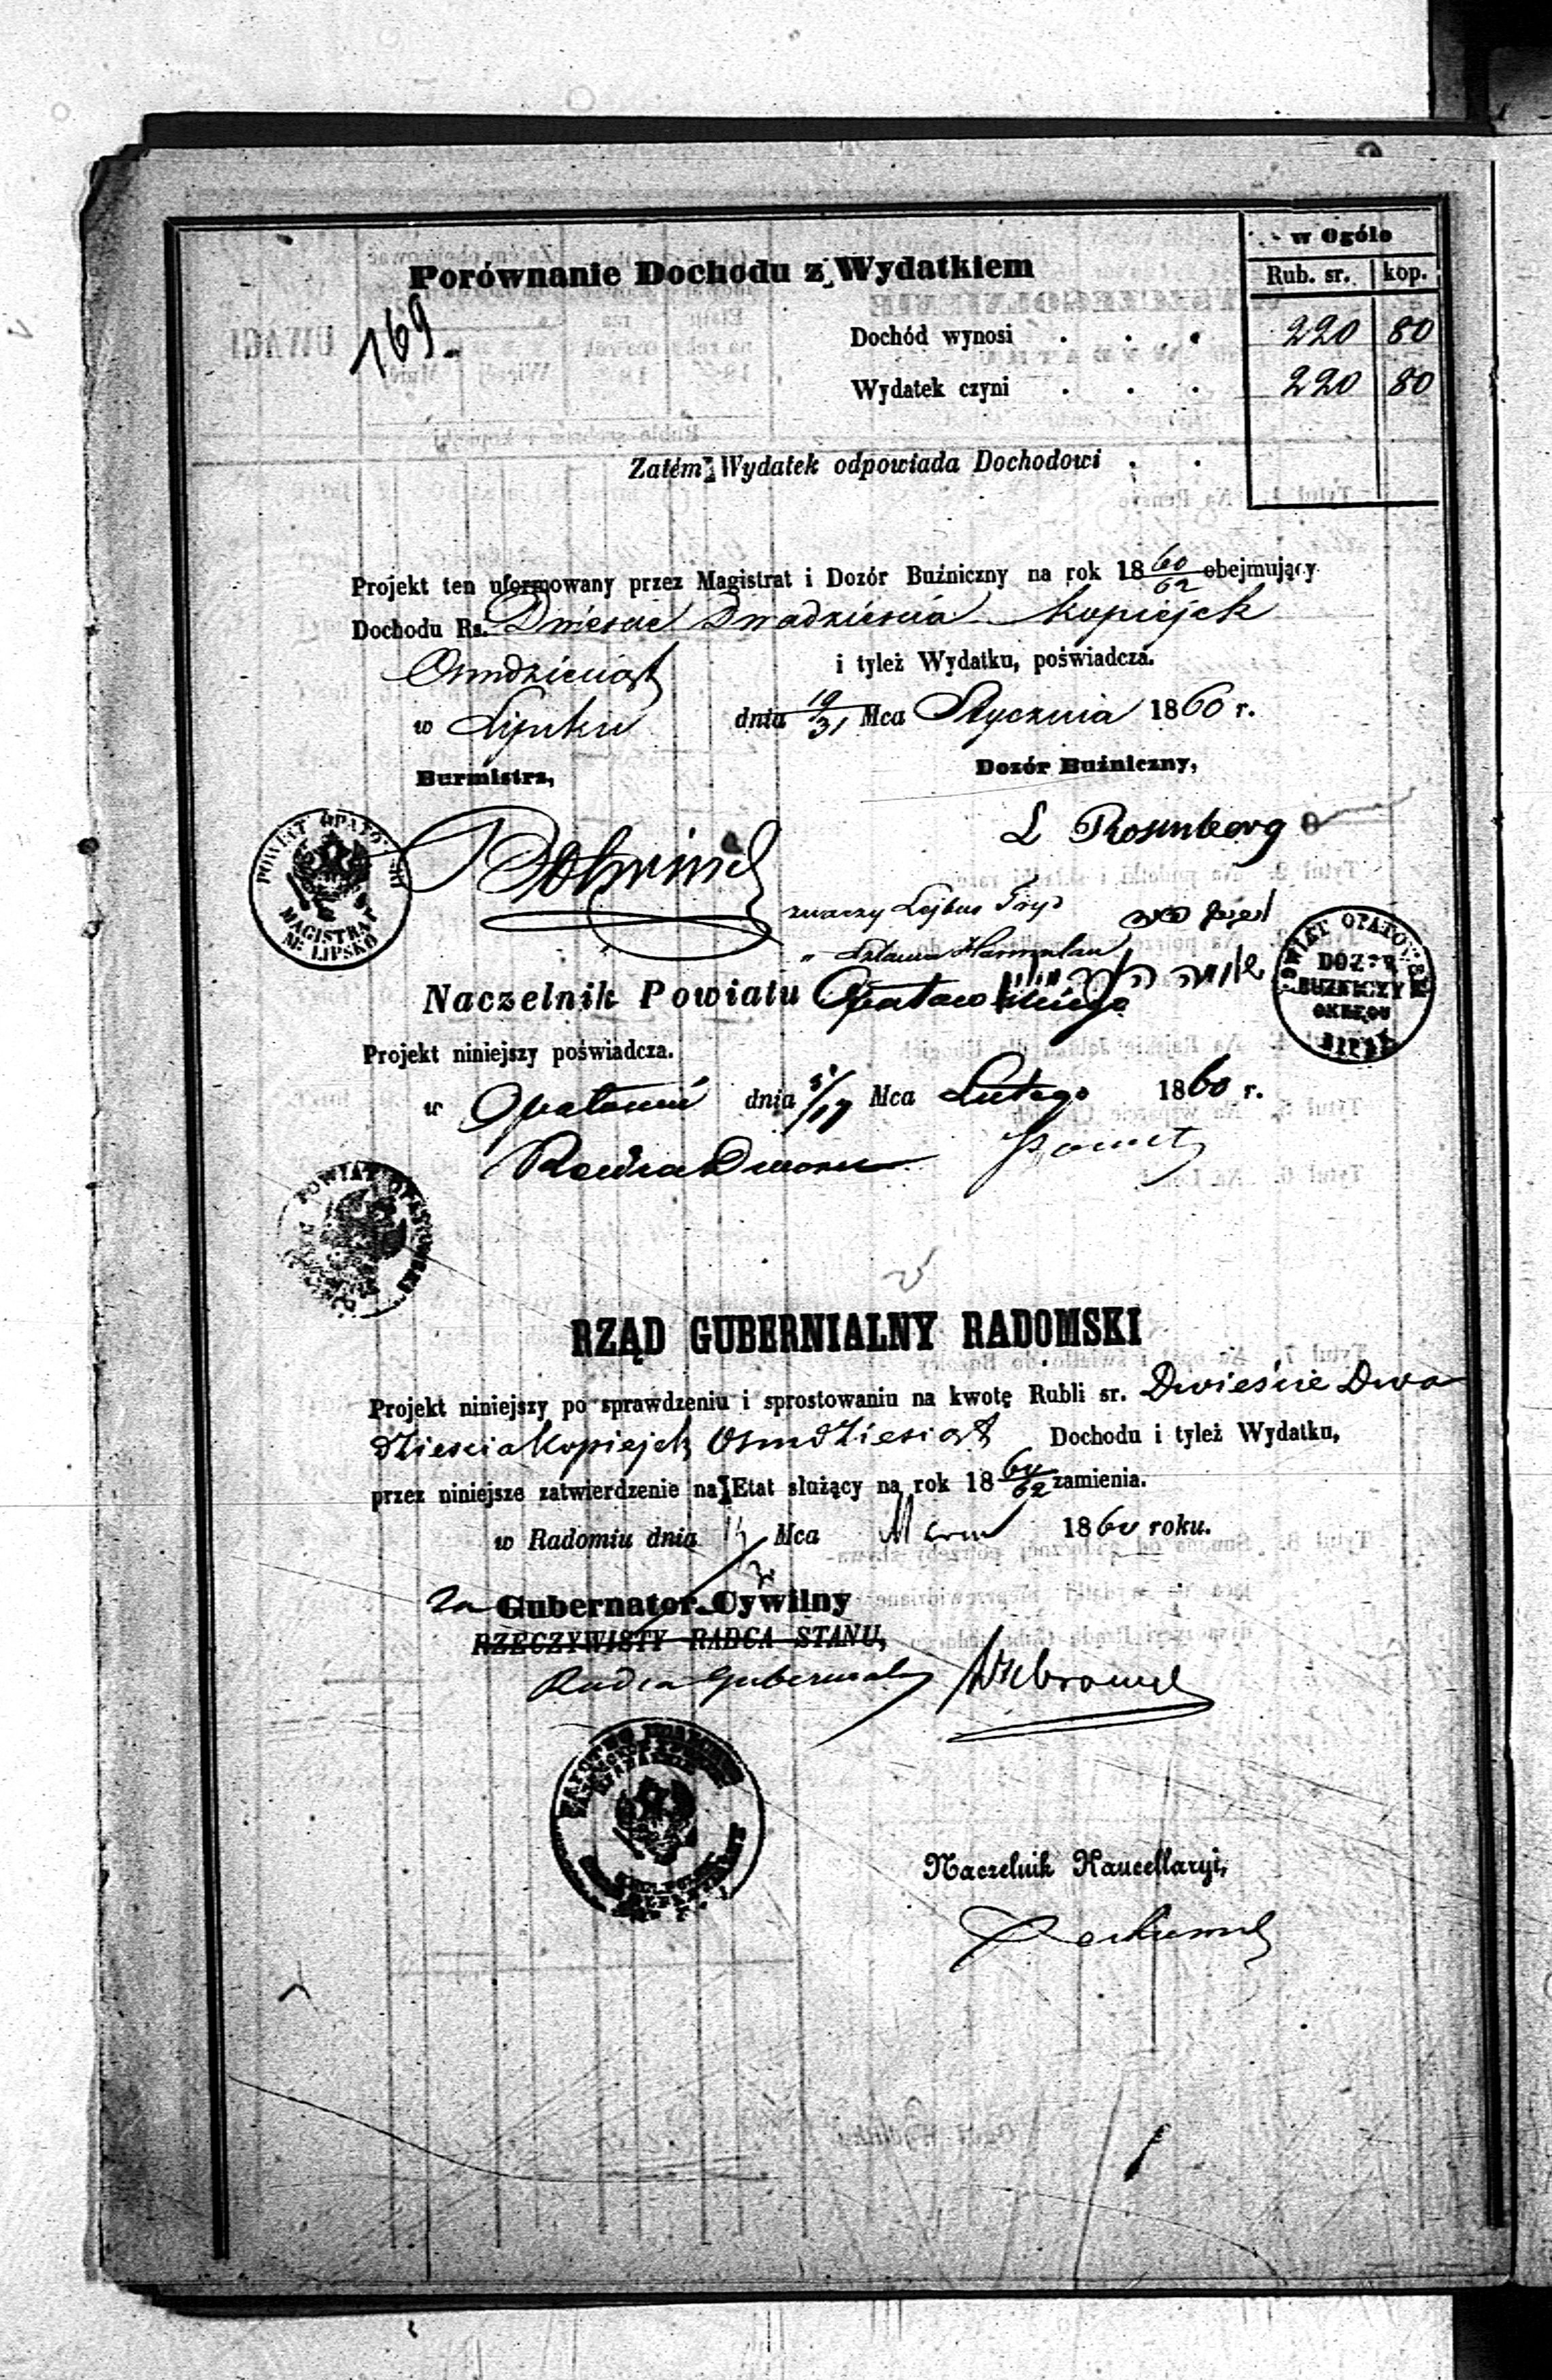 w Ogóle
Rub. sr. kop.
Porównanie Dochodu z Wydatkiem
169
Dochód wynosi . . . 220 80
Wydatek czyni . . . 220 80
Zatém Wydatek odpowiada Dochodowi . .
Projekt ten uformowany przez Magistrat i Dozór Buźniczny na rok 18 60/62 obejmujący
Dochodu Rs. Dwieście Dwadzieścia kopiejek
Osmdziesiąt i tyleż Wydatku, poświadcza.
w Lipsku dnia 19/31 Mca Stycznia 1860 r.
Burmistrz, Dozór Buźniczny,
POWIAT OPATOWSKI
MAGISTRAT
M. LIPSKO
L Rosenberg
znaczy Lejbus
POWIAT OPATOWSKI
DOZÓR
BUZNICZY
OKRĘGU
LIPSK
Naczelnik Powiatu Opatowskiego
Projekt niniejszy poświadcza.
w Opatowie dnia 5/17 Mca Lutego 1860 r.
Radca Dworu
POWIAT OPATOWSKI
RZĄD GUBERNIALNY RADOMSKI
Projekt niniejszy po sprawdzeniu i sprostowaniu na kwotę Rubli sr. Dwieście Dwa
dzieścia Kopiejek Osmdziesiąt Dochodu i tyleż Wydatku,
przez niniejsze zatwierdzenie na Etat służący na rok 18 60/62 zamienia.
w Radomiu dnia Mca 1860 roku.
za Gubernator Cywilny
RZECZYWISTY RADCA STANU,
Radca Gubernialny
Naczelnik Kancellaryi,